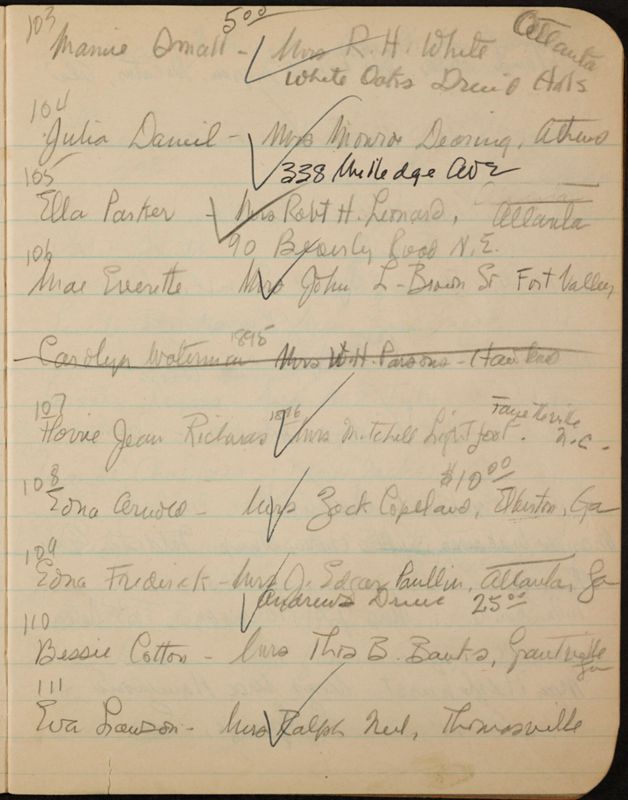 103 5.00
Mamie Small - Mrs R. H. White Atlanta
White Oaks Druid Hills
104
Julia Daniel - Mrs Monroe Dearing, Athens
338 Milledge Ave
105
Ella Parker - Mrs Robt H. Leonard, Atlanta
90 Beverly Road N.E.
106
Mae Everette Mrs John L - Brown St Fort Valley
Carolyn Waterman 1895 Mrs W. H. Parsons -
107 Fayetteville
Jean Richards 1896 Mrs Mitchell Lightfoot. N.C.
108 $10.00
Edna Arnold - Mrs Zack Copeland, Elberton, Ga
109
Edna Frederick - Mrs O. Edgar Paullin, Atlanta, Ga
Andrews Drive 25.00
110
Bessie Cotton - Mrs Thos B. Banks, Grantville
Ga
111
Eva Lawson - Mrs Ralph Neil, Thomasville